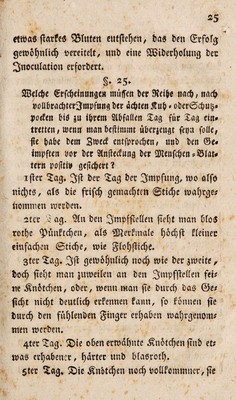 25
etwas starkes Bluten entstehen, das den Erfolg
gewöhnlich vereitelt, und eine Widerholung der
Inoculation erfordert.
§. 25.
Welche Erscheinungen müssen der Reihe nach, nach
vollbrachter Impfung der ächten Kuh- oder Schutz-
pocken bis zu ihrem Abfallen Tag für Tag ein-
tretten, wenn man bestimmt überzeugt seyn solle,
sie habe dem Zweck entsprochen, und den Ge-
impften vor der Ansteckung der Menschen-Blat-
tern positiv gesichert?
1ster Tag. Ist der Tag der Impfung, wo also
nichts, als die frisch gemachten Stiche wahrge-
nommen werden.
2ter Tag. An den Impfstellen sieht man blos
rothe Pünktchen, als Merkmale höchst kleiner
einfachen Stiche, wie Flohstiche.
3ter Tag. Ist gewöhnlich noch wie der zweite,
doch sieht man zuweilen an den Impfstellen fei-
ne Knötchen, oder, wenn man sie durch das Ge-
sicht nicht deutlich erkennen kann, so können sie
durch den fühlenden Finger erhaben wahrgenom-
men werden.
4ter Tag. Die oben erwähnte Knötchen sind et-
was erhabener, härter und blasroth.
5ter Tag. Die Knötchen noch vollkommner, sie